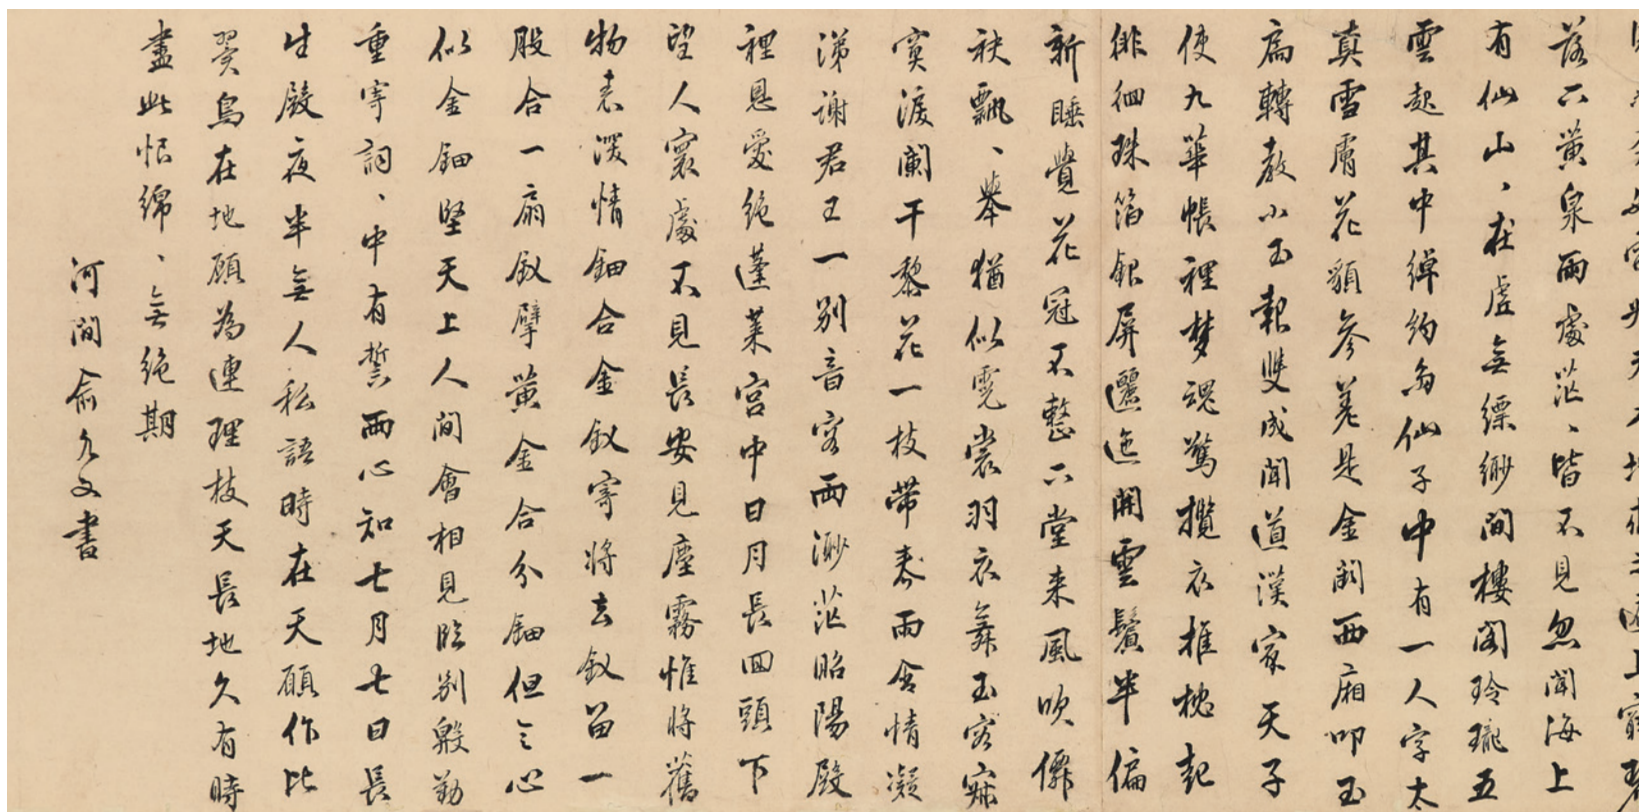 落下黃泉兩處茫、皆不見忽聞海上
有仙山、在虛無縹緲間樓閣玲瓏五
雲起其中綽約多仙子中有一人字太
真雪膚花貌參差是金闕西廂叩玉
扃轉教小玉報雙成聞道漢家天子
使九華帳裡夢魂驚攬衣推枕起
徘徊珠箔銀屏邐迤開雲鬢半偏
新睡覺花冠不整下堂来風吹僊
袂飄、舉猶似霓裳羽衣舞玉容寂
寞淚闌干黎花一枝帶春雨含情凝
涕謝君王一别音容兩渺茫昭陽殿
裡恩愛絶蓬萊宮中日月長回頭下
望人寰處不見長安見塵霧惟將舊
物表深情鈿合金釵寄將去釵留一
股合一扇釵擘黃金合分鈿但令心
似金鈿堅天上人間會相見臨别殷勤
重寄詞、中有誓兩心知七月七日長
生殿夜半無人私語時在天願作比
翼鳥在地願為連理枝天長地久有時
盡此恨綿、無絶期
河間俞允文書